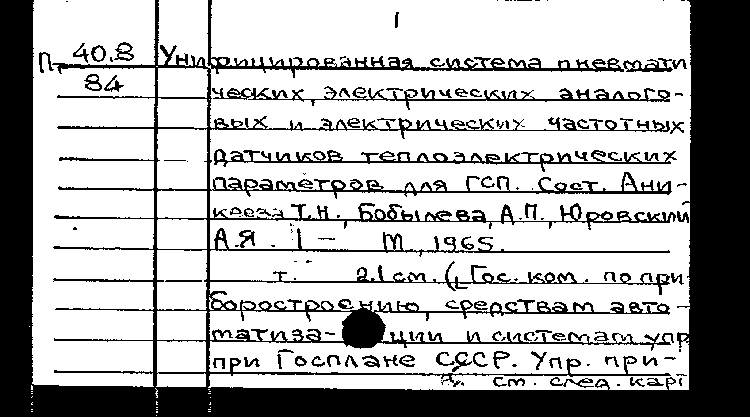 1
П 40.8 Унифицированная система пневмати
84 ческих, электрических аналого-
вых и электрических частотных
датчиков теплоэлектрических
параметров для ГСП. Сост. Ани-
кеева Т.Н., Бобылева, А.П., Юровский
А.Я. 1 — М., 1965.
т. 21 см. (Гос. ком. по при
боростроению, средствам авто-
матиза- ции и системам упр
при Госплане СССР. Упр. при-
см. след. карт